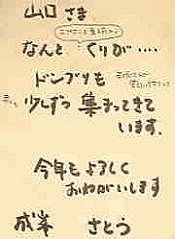 山口さま
なんと くりが‥‥
ドンブリも
少しずつ 集まってきて
います.
今年もよろしく
おねがいします
成峯 さとう